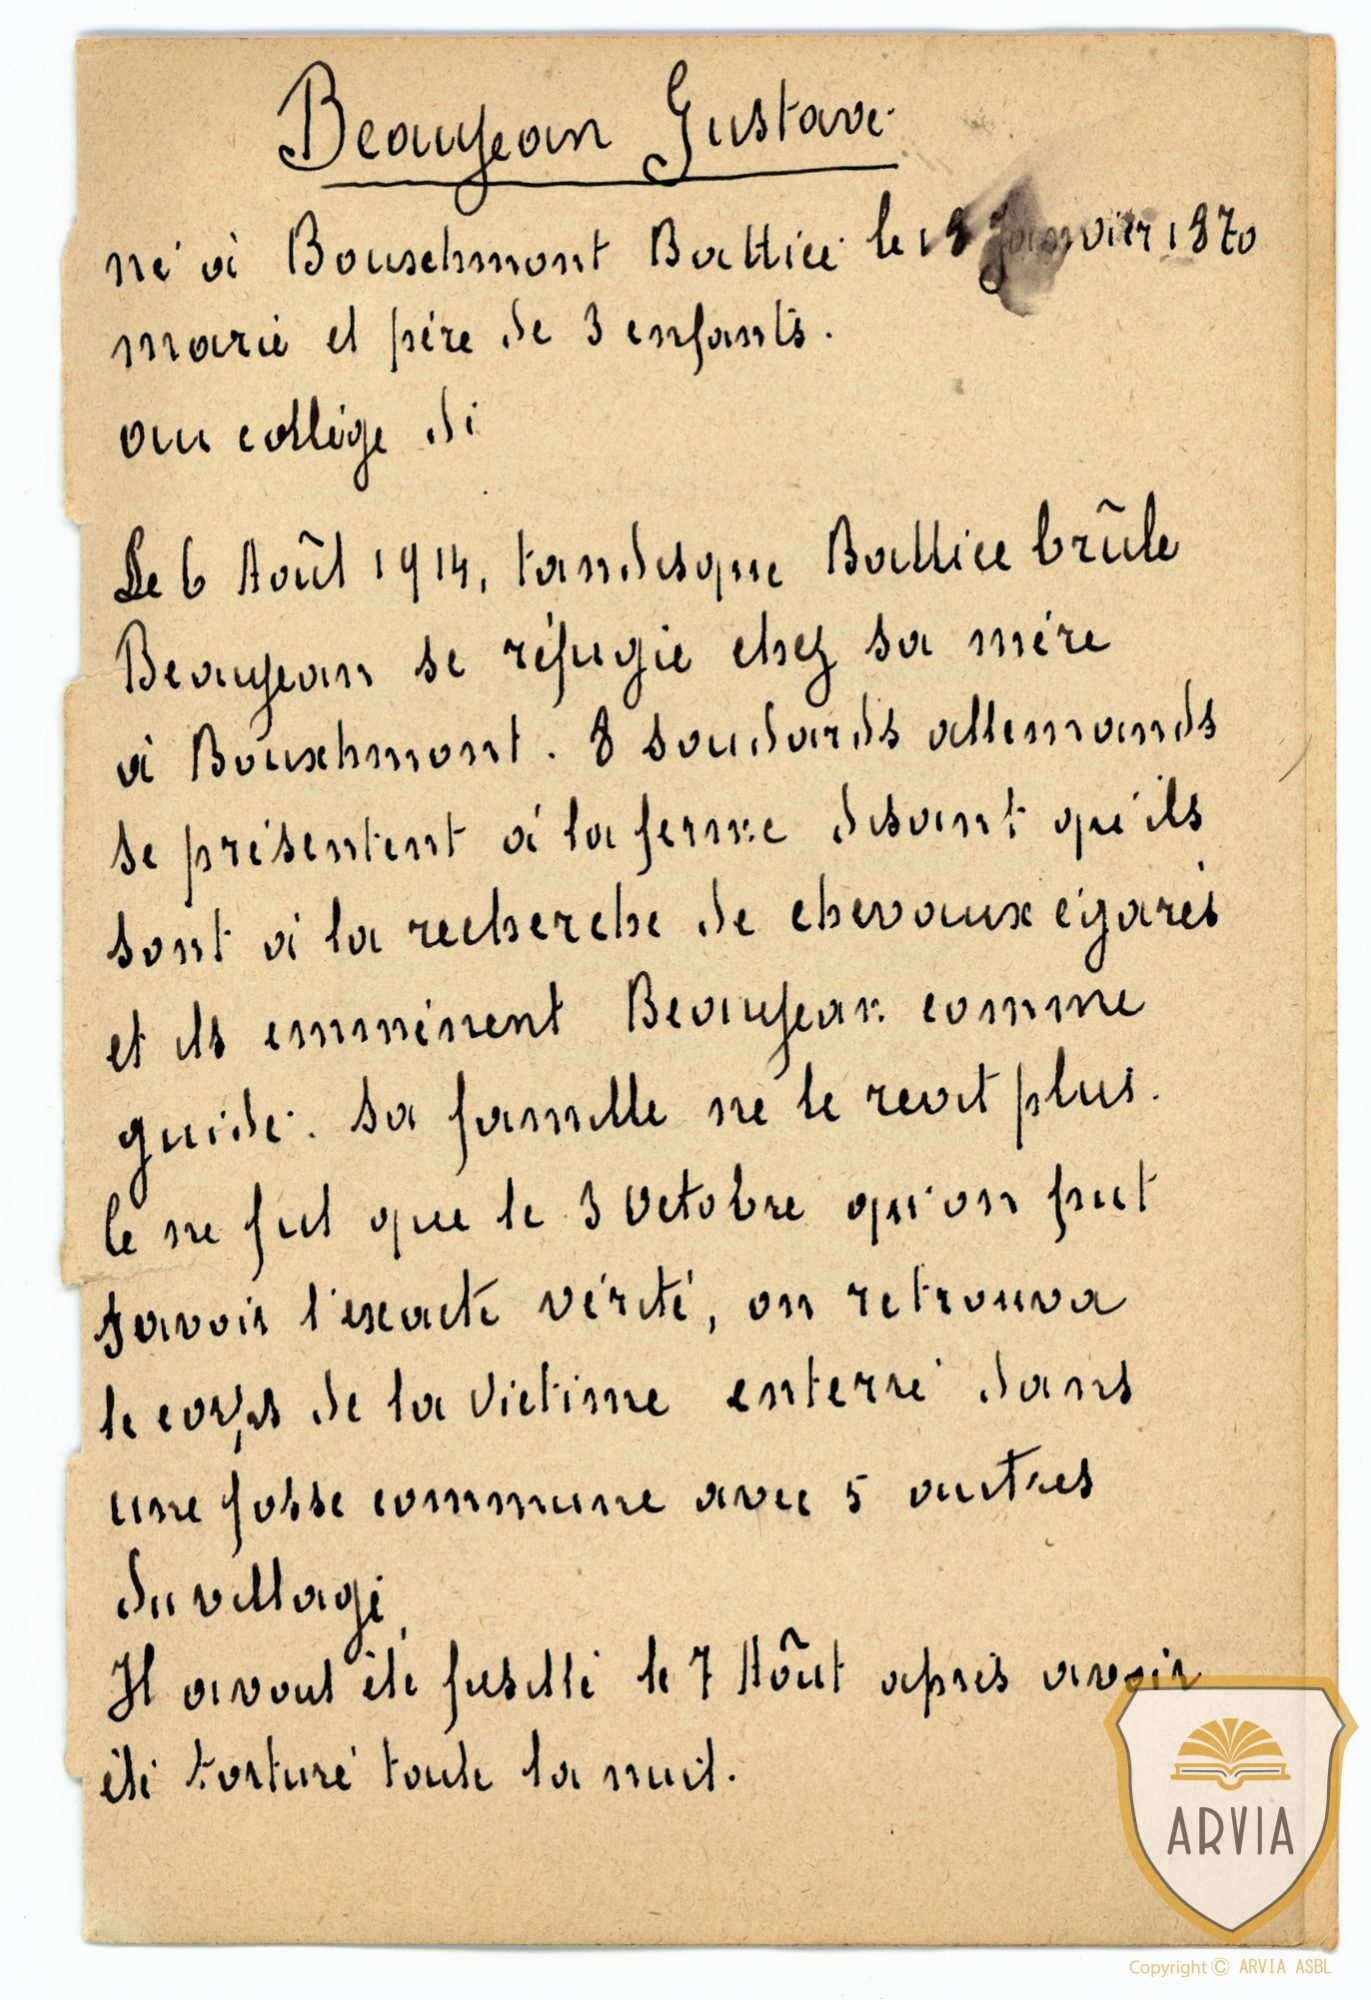 Beaujean Gustave
né à Bouxhmont Battice le 18 Janvier 1870
marié et père de 3 enfants.
au collège di
Le 6 Août 1914, tandisque Battice brûle
Beaujean se réfugie chez sa mère
à Bouxhmont. 8 soudards allemands
se présentent à la ferme disant qu'ils
sont à la recherche de chevaux égarés
et ils emmènent Beaujean comme
guide. Sa famille ne le revit plus.
Ce ne fut que le 3 Octobre qu'on put
savoir l'exacte vérité, on retrouva
le corps de la victime enterré dans
une fosse commune avec 5 autres
du village
Il avait été fusillé le 7 Août après avoir
été torturé toute la nuit.
ARVIA
Copyright © ARVIA ASBL